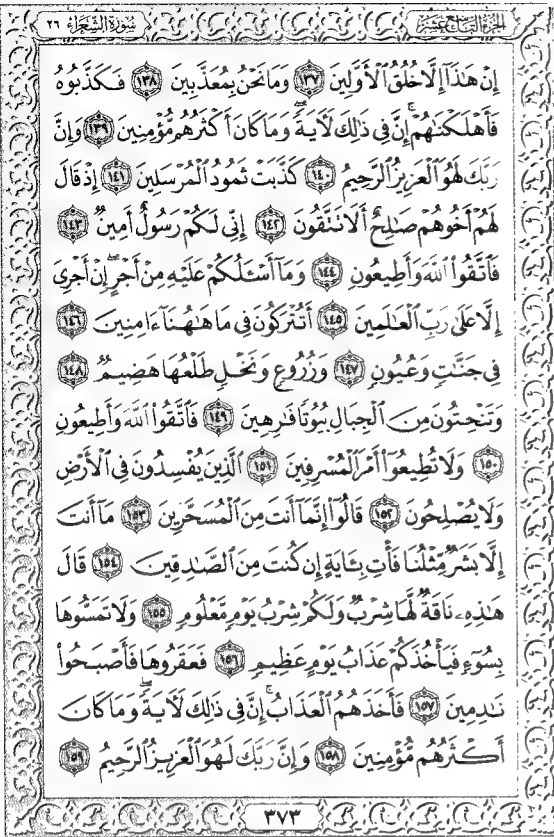 سورة الشعراء ٢٦
الجزء التاسع عشر
إِنْ هَٰذَآ إِلَّا خُلُقُ ٱلْأَوَّلِينَ ١٣٧ وَمَا نَحْنُ بِمُعَذَّبِينَ ١٣٨ فَكَذَّبُوهُ
فَأَهْلَكْنَٰهُمْ ۗ إِنَّ فِى ذَٰلِكَ لَأٓيَةً ۖ وَمَا كَانَ أَكْثَرُهُم مُّؤْمِنِينَ ١٣٩ وَإِنَّ
رَبَّكَ لَهُوَ ٱلْعَزِيزُ ٱلرَّحِيمُ ١٤٠ كَذَّبَتْ ثَمُودُ ٱلْمُرْسَلِينَ ١٤١ إِذْ قَالَ
لَهُمْ أَخُوهُمْ صَٰلِحٌ أَلَا تَتَّقُونَ ١٤٢ إِنِّى لَكُمْ رَسُولٌ أَمِينٌ ١٤٣
فَٱتَّقُوا۟ ٱللَّهَ وَأَطِيعُونِ ١٤٤ وَمَآ أَسْـَٔلُكُمْ عَلَيْهِ مِنْ أَجْرٍ ۖ إِنْ أَجْرِىَ
إِلَّا عَلَىٰ رَبِّ ٱلْعَٰلَمِينَ ١٤٥ أَتُتْرَكُونَ فِى مَا هَٰهُنَآ ءَامِنِينَ ١٤٦
فِى جَنَّٰتٍ وَعُيُونٍ ١٤٧ وَزُرُوعٍ وَنَخْلٍ طَلْعُهَا هَضِيمٌ ١٤٨
وَتَنْحِتُونَ مِنَ ٱلْجِبَالِ بُيُوتًا فَٰرِهِينَ ١٤٩ فَٱتَّقُوا۟ ٱللَّهَ وَأَطِيعُونِ
١٥٠ وَلَا تُطِيعُوٓا۟ أَمْرَ ٱلْمُسْرِفِينَ ١٥١ ٱلَّذِينَ يُفْسِدُونَ فِى ٱلْأَرْضِ
وَلَا يُصْلِحُونَ ١٥٢ قَالُوٓا۟ إِنَّمَآ أَنتَ مِنَ ٱلْمُسَحَّرِينَ ١٥٣ مَآ أَنتَ
إِلَّا بَشَرٌ مِّثْلُنَا فَأْتِ بِـَٔايَةٍ إِن كُنتَ مِنَ ٱلصَّٰدِقِينَ ١٥٤ قَالَ
هَٰذِهِۦ نَاقَةٌ لَّهَا شِرْبٌ وَلَكُمْ شِرْبُ يَوْمٍ مَّعْلُومٍ ١٥٥ وَلَا تَمَسُّوهَا
بِسُوٓءٍ فَيَأْخُذَكُمْ عَذَابُ يَوْمٍ عَظِيمٍ ١٥٦ فَعَقَرُوهَا فَأَصْبَحُوا۟
نَٰدِمِينَ ١٥٧ فَأَخَذَهُمُ ٱلْعَذَابُ ۗ إِنَّ فِى ذَٰلِكَ لَأٓيَةً ۖ وَمَا كَانَ
أَكْثَرُهُم مُّؤْمِنِينَ ١٥٨ وَإِنَّ رَبَّكَ لَهُوَ ٱلْعَزِيزُ ٱلرَّحِيمُ ١٥٩
٣٧٣